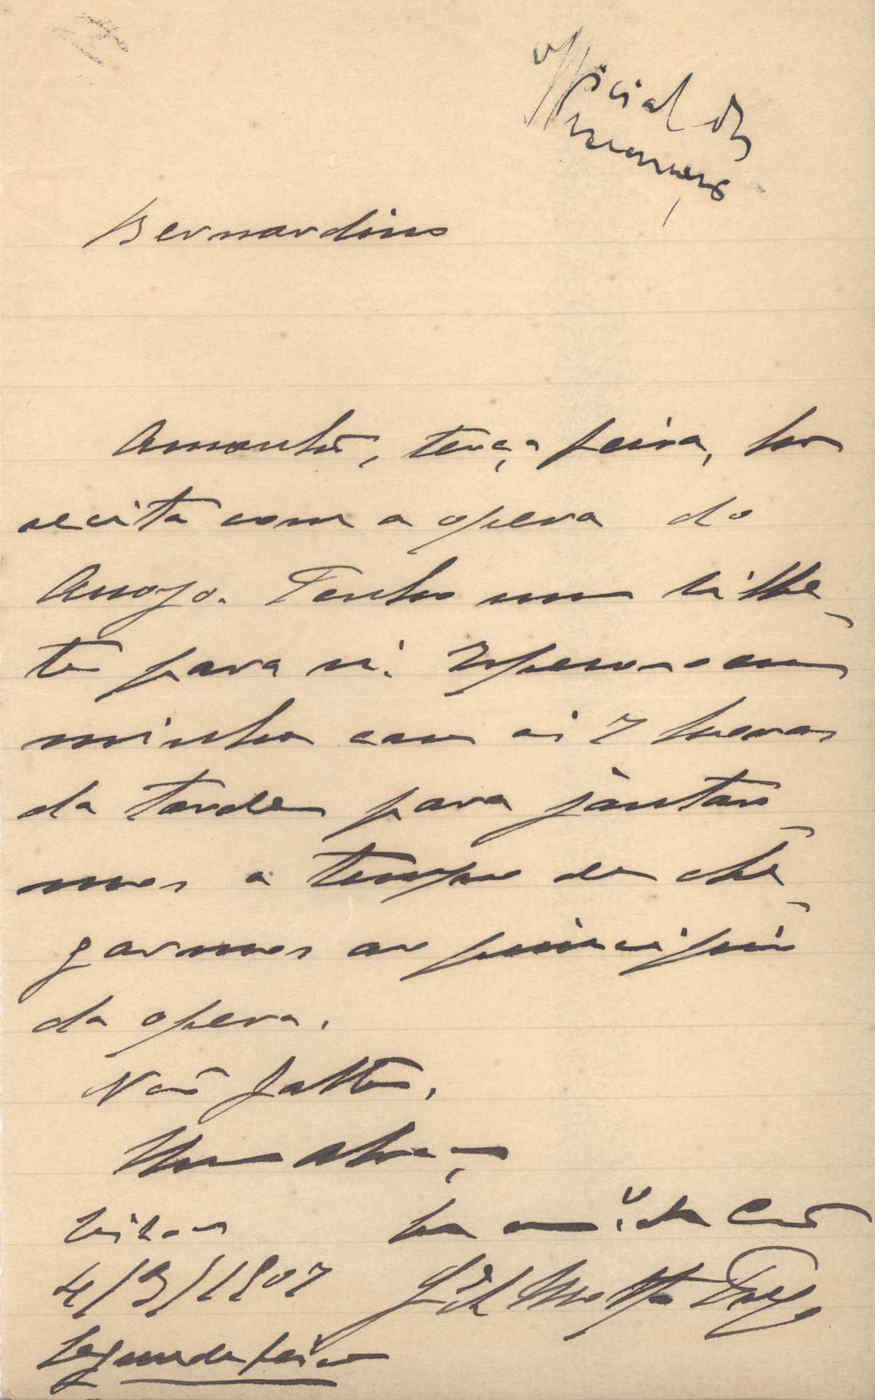 Official
Bernardino
Amanhã, terça feira, ha
recita com a opera do
Arroyo. Tenho um bilhe-
te para si. Espero-o em
minha casa ás 7 horas
da tarde para jantar-
mos a tempo de che-
garmos ao principio
da opera.
Não falte.
Um abraço
Lisboa
4/3/1907 Motta Prego
Segunda feira